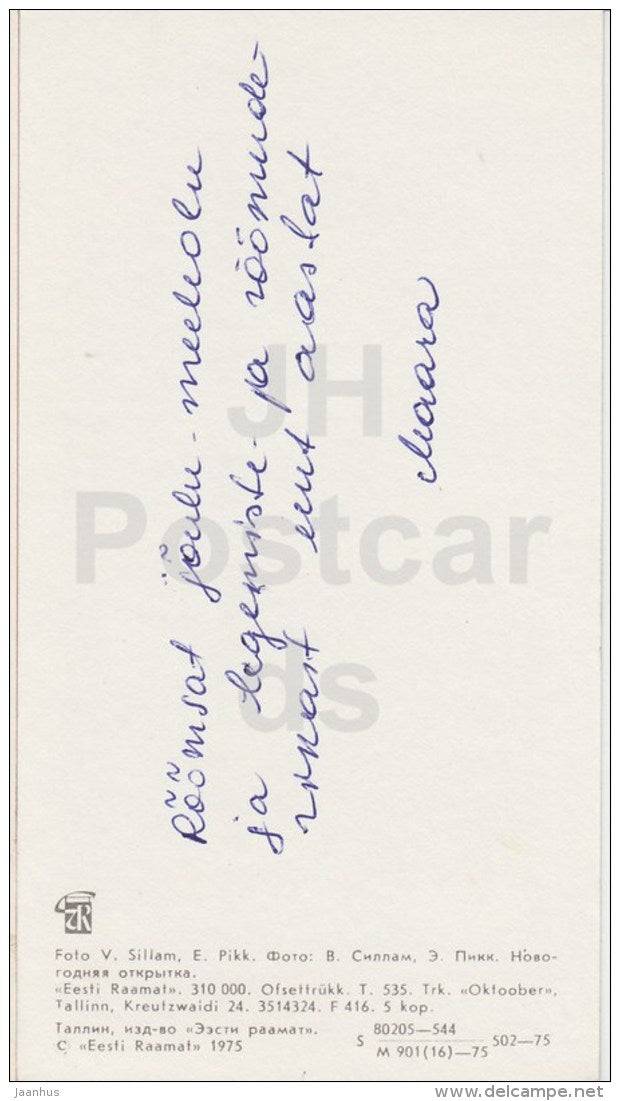 Rõõmsat jõulu-meeleolu
ja tegemiste- ja rõõmude-
rikast uut aastat
Maara
JH
Postcar
ds
Foto V. Sillam, E. Pikk. Фото: В. Силлам, Э. Пикк. Ново-
годняя открытка.
«Eesti Raamat». 310 000. Ofsettrükk. T. 535. Trk. «Oktoober»,
Tallinn, Kreutzwaldi 24. 3514324. F 416. 5 kop.
Таллин, изд-во «Ээсти раамат».
© «Eesti Raamat» 1975
S 80205—544
M 901(16)—75 502—75
jaanhus
www.delcampe.net